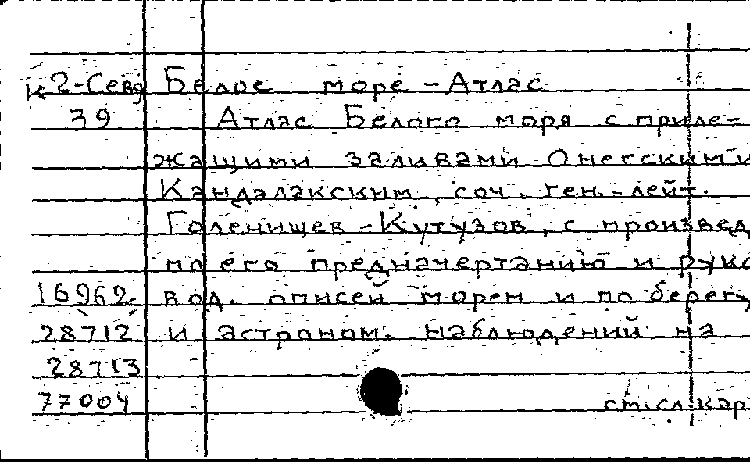 К2-Севд Белое море - Атлас
39 Атлас Белого моря с приле-
жащими заливами Онегским и
Кандалакским, соч. ген.-лейт.
Голенищев-Кутузов, с произвед
по его предначертанию и руко
16962 вод. описей морем и по берегу
28712 и астроном. наблюдений на
28713
77004 см.сл.кар